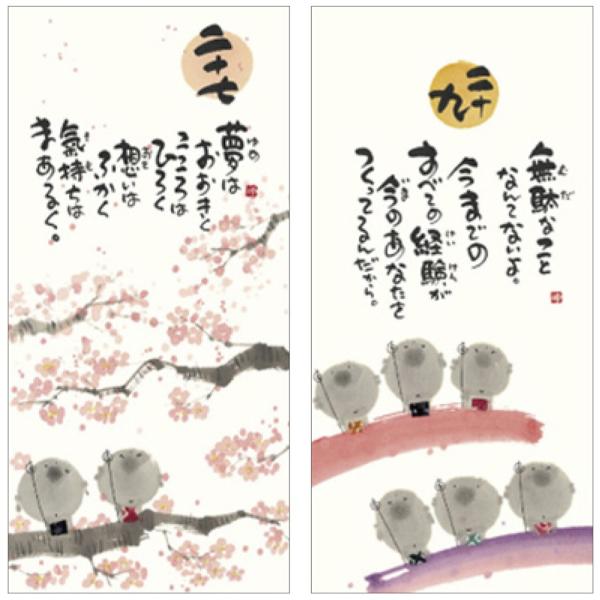 二十七
夢は
おおきく
こころは
ひろく
想いは
ふかく
氣持ちは
まあるく。
二十九
無駄なこと
なんてないよ。
今までの
すべての経験が
今のあなたを
つくってるんだから。